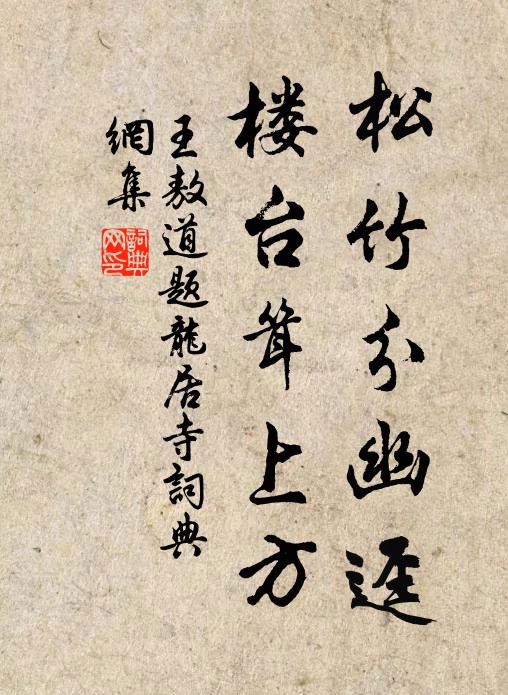 松竹分幽迳
楼台耸上方
王敖道题龍居寺詞典
網集
詞典
网印